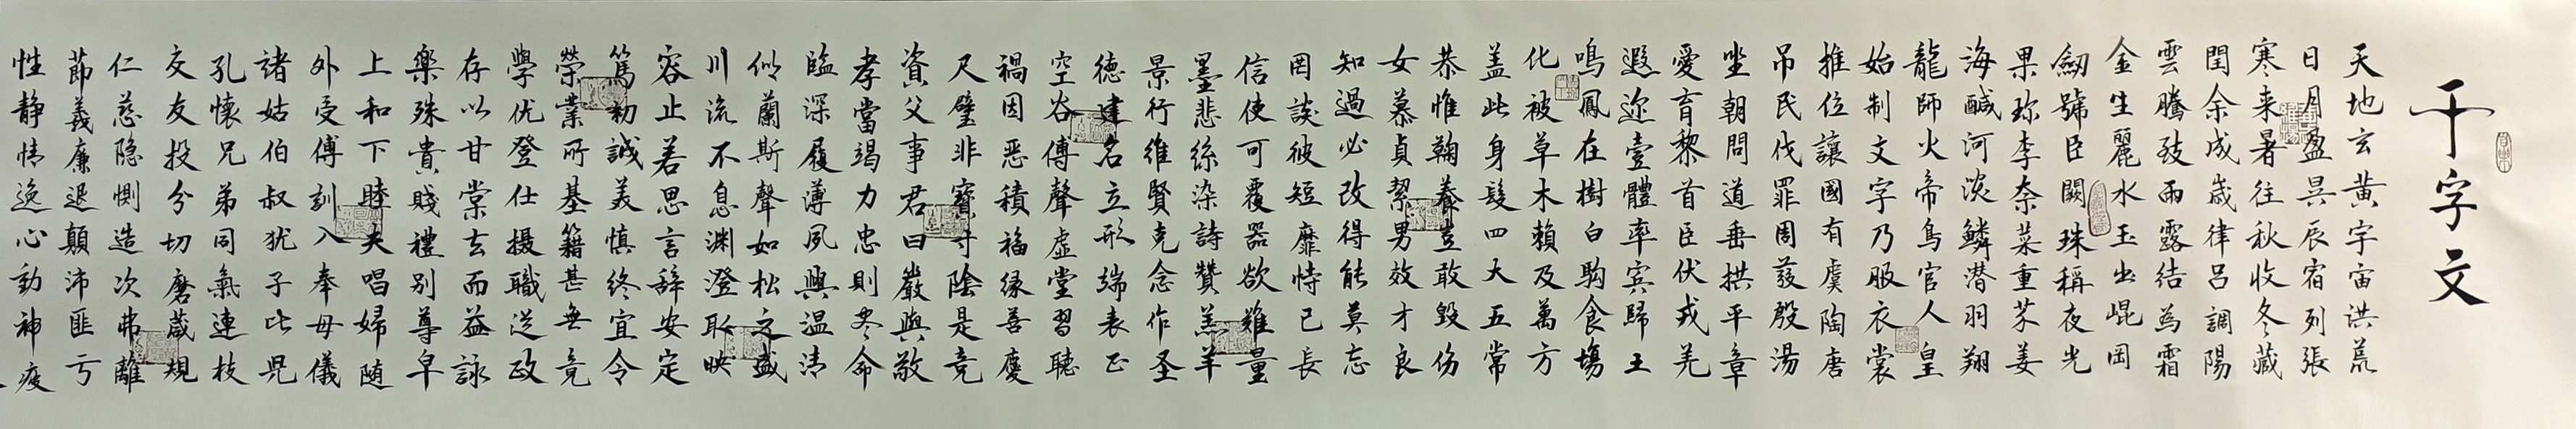 千字文
天地玄黄宇宙洪荒
日月盈昃辰宿列張
寒来暑往秋收冬藏
閏余成歲律呂調陽
雲騰致雨露結為霜
金生麗水玉出崐岡
劍號臣闕珠稱夜光
果珍李奈菜重芥姜
海醎河淡鱗潜羽翔
龍師火帝鳥官人皇
始制文字乃服衣裳
推位讓國有虞陶唐
吊民伐罪周發殷湯
坐朝問道垂拱平章
愛育黎首臣伏戎羌
遐迩壹體率宾歸王
鳴鳳在樹白駒食場
化被草木賴及萬方
盖此身髮四大五常
恭惟鞠養豈敢毀伤
女慕貞絜男效才良
知過必改得能莫忘
罔談彼短靡恃己長
信使可覆器欲難量
墨悲絲染詩贊羔羊
景行維賢克念作圣
德建名立形端表正
空谷傳聲虚堂習聽
禍因恶積福缘善慶
尺璧非寶寸陰是竞
資父事君曰嚴與敬
孝當竭力忠則尽命
臨深履薄夙興温清
似蘭斯聲如松之盛
川流不息渊澄取映
容止若思言辞安定
篤初誠美慎終宜令
榮業所基籍甚無竟
學优登仕摄職從政
存以甘棠去而益詠
樂殊貴賤禮别尊卑
上和下睦夫唱婦随
外受傅訓入奉母儀
諸姑伯叔犹子比兒
孔懷兄弟同氣連枝
交友投分切磨箴規
仁慈隐惻造次弗離
節義廉退顛沛匪亏
性静情逸心動神疲